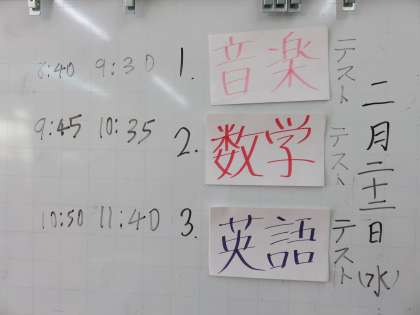 8:40 9:30 1. 音楽 テスト
9:45 10:35 2. 数学 テスト
10:50 11:40 3. 英語 テスト
二月二十二日(水)